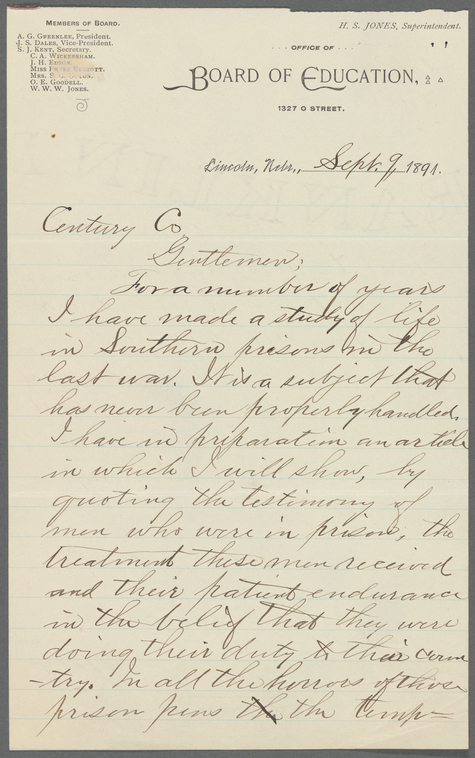 MEMBERS OF BOARD.
A. G. GREENLEE, President.
J. S. DALES, Vice-President.
S. J. KENT, Secretary.
C. A. WICKERSHAM.
J. H.
MISS
MRS. S.
O. E. GOODELL.
W. W. W. JONES.
H. S. JONES, Superintendent.
OFFICE OF
BOARD OF EDUCATION,
1327 O STREET.
Lincoln, Nebr., Sept. 9, 1891.
Century Co
Gentlemen;
For a number of years
I have made a study of life
in Southern prisons in the
last war. It is a subject that
has never been properly handled.
I have in preparation an article
in which I will show, by
quoting the testimony of
men who were in prison, the
treatment these men received
and their patient endurance
in the belief that they were
doing their duty to their coun
-try. In all the horrors of those
prison pens the the temp=